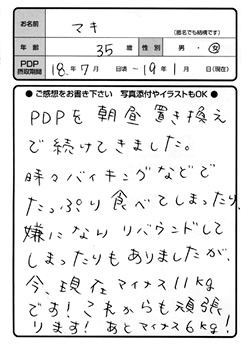 お名前 マキ (匿名でも結構です)
年齢 35 歳 性別 男・女
PDP摂取期間 18年7月 日頃〜19年1月 日(現在)
●ご感想をお書き下さい 写真添付やイラストもOK●
PDPを朝昼置き換え
で続けてきました。
時々バイキングなどで
たっぷり食べてしまったり、
嫌になりリバウンドして
しまったりもありましたが、
今、現在マイナス11kg
です!これからも頑張
ります!あとマイナス6kg!